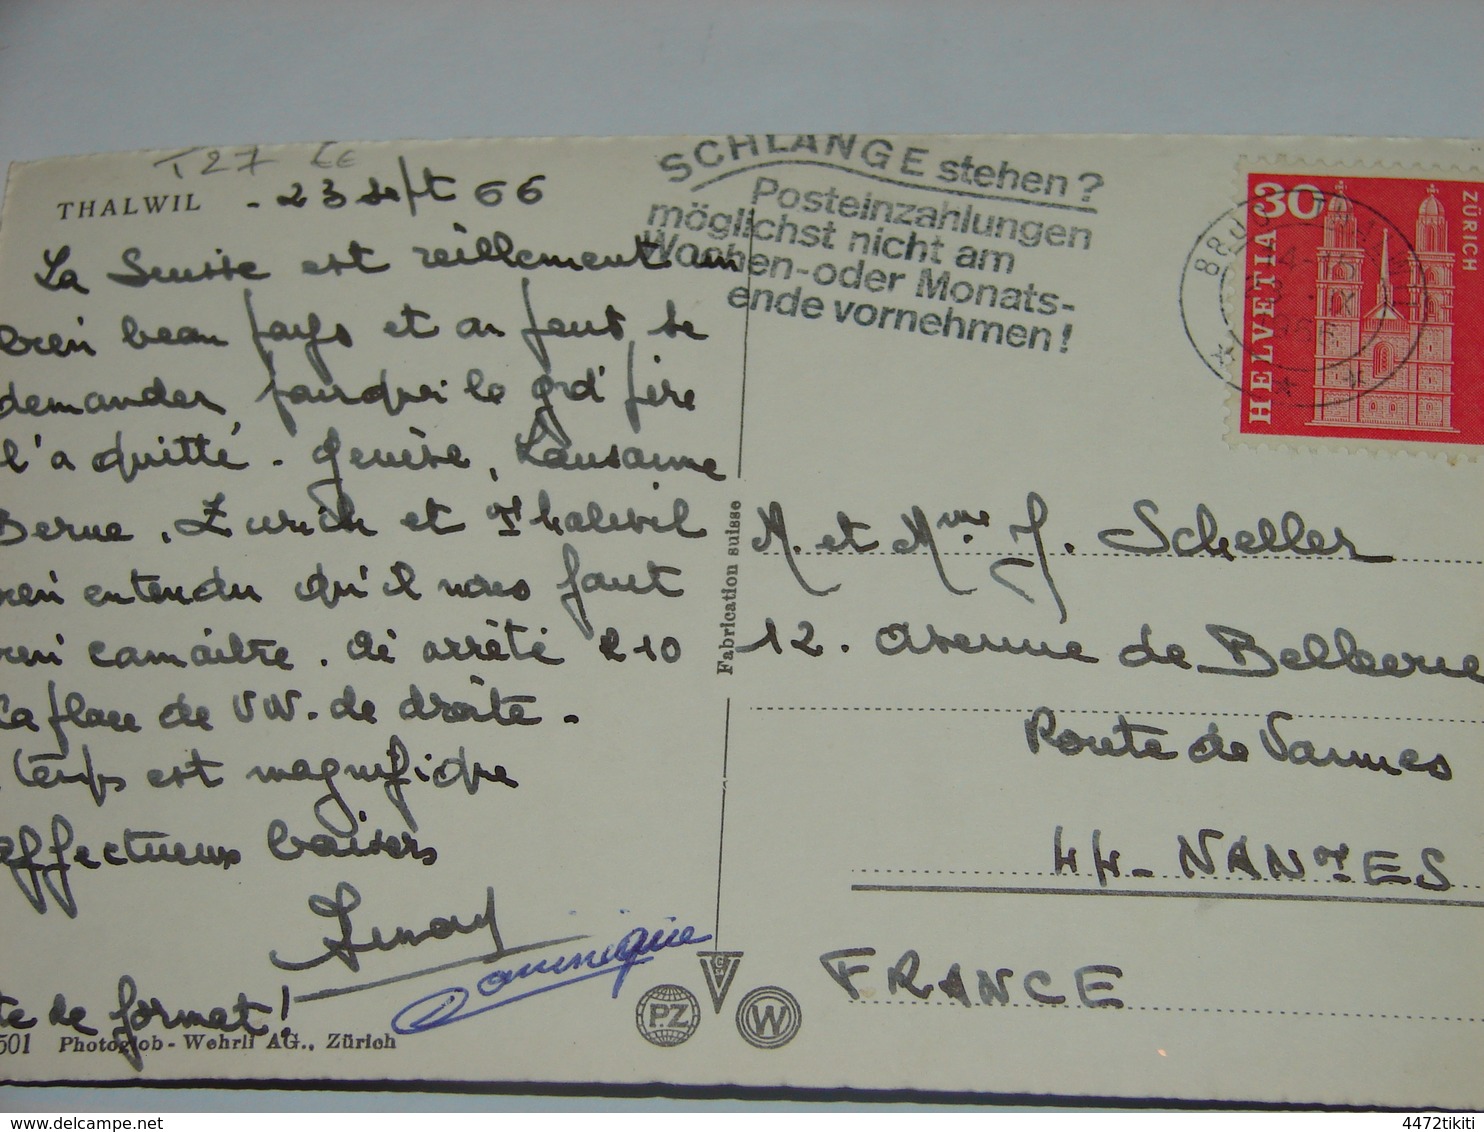 T27
THALWIL - 23 sept 66
La Suisse est réellement un
beau pays et on peut se
demander pourquoi le grd' père
l'a quitté. Genève, Lausanne
Berne, Zurich et Thalwil
entendu qu'il nous faut
connaître. Ci arrêté 210
la place de VW. de droite.
temps est magnifique
affectueux baisers
Dominique
te de format!
501 Photoglob-Wehrli AG., Zürich
SCHLANGE stehen?
Posteinzahlungen
möglichst nicht am
Wochen-oder Monats-
ende vornehmen!
30
HELVETIA
ZÜRICH
Fabrication suisse
M. et Mme J. Scheller
12. Avenue de Bellevue
Route de Vannes
44-NANTES
FRANCE
PZ
W
4472tikiti